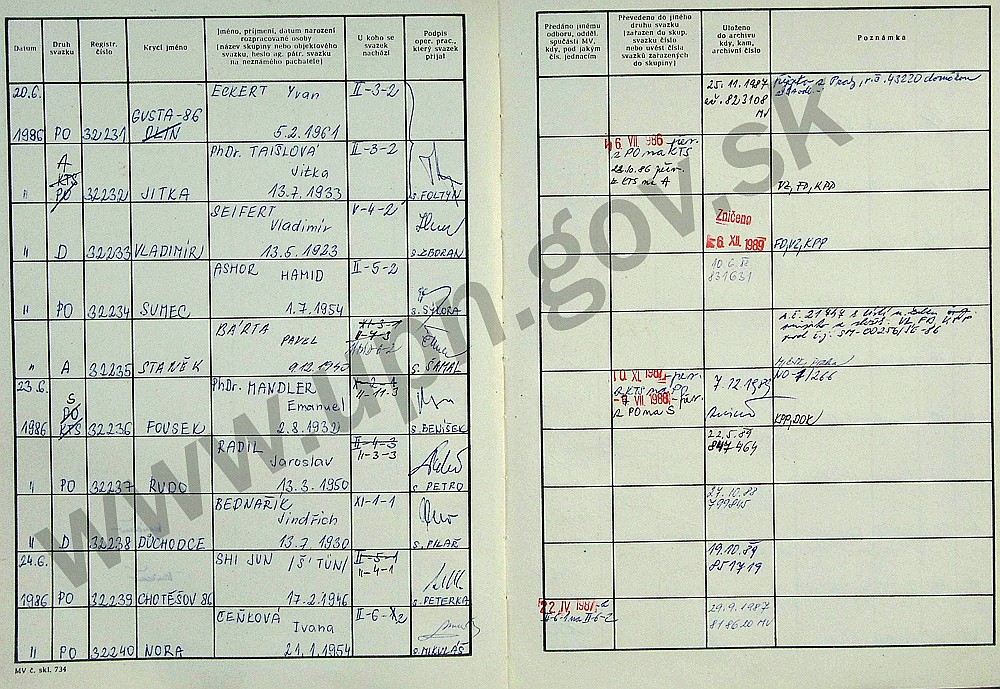 Datum
Druh svazku
Registr. číslo
Krycí jméno
Jméno, příjmení, datum narození
rozpracované osoby
(název skupiny nebo objektového
svazku, heslo ag. pátr. svazku
na neznámého pachatele)
U koho se
svazek
nachází
Podpis
oper. prac.,
který svazek
přijal
Předáno jinému
odboru, odděl.
součásti MV,
kdy, pod jakým
čís. jednacím
Převedeno do jiného
druhu svazku
(zařazen do skup.
svazku číslo
nebo uvést čísla
svazků zařazených
do skupiny)
Uloženo
do archivu
kdy, kam,
archivní číslo
Poznámka
20.6.
1986 PO 32231 GUSTA-86
OLIN
ECKERT Yvan
5.2.1961
II-3-2
25.11.1987
823108
MV
A
KTS
PO
" 32232 JITKA
PhDr. TAIŠLOVÁ
Jitka
13.7.1933
II-3-2
s. FOLTÝN
6. VII. 1986 pěv.
z PO na KTS
23.10.86 pěv.
z KTS na A
VZ, FD, KPP
" D 32233 VLADIMÍR
SEIFERT
Vladimír
13.5.1923
V-4-2
s. ZBORAN
Zničeno
6. XII. 1989
FD, VZ, KPP
" PO 32234 SUMEC
ASHOR HAMID
1.7.1954
II-5-2
s. SÝKORA
831631
" A 32235 STANĚK
BÁRTA
PAVEL
9.12.1940
XI-3-1
s. ŠAMAL
23.6.
1986
S
PO
KTS
32236 FOUSEK
PhDr. MANDLER
Emanuel
2.8.1932
II-11-3
s. BENÍŠEK
z KTS na PO
VII. 1988 - pěv.
z PO na S
7.12.1989
KPP, DOK
" PO 32237 RUDO
RADIL
Jaroslav
13.3.1950
II-4-3
II-3-3
s. PETRO
22.5.89
847464
" D 32238 DŮCHODCE
BEDNAŘÍK
Jindřich
13.7.1930
XI-1-1
s. PILAŘ
27.10.88
799815
24.6.
1986 PO 32239 CHOTĚŠOV 86
SHI JUN /Š'TŮN/
17.2.1946
II-5-1
II-4-1
s. PETERKA
19.10.89
851719
" PO 32240 NORA
ČEŇKOVÁ
Ivana
21.1.1954
II-6-2
s. MIKULÁŠ
22. IV. 1987
II-6-1 na II-6-2
29.9.1987
818620 MV
MV č. skl. 734
www.upn.gov.sk